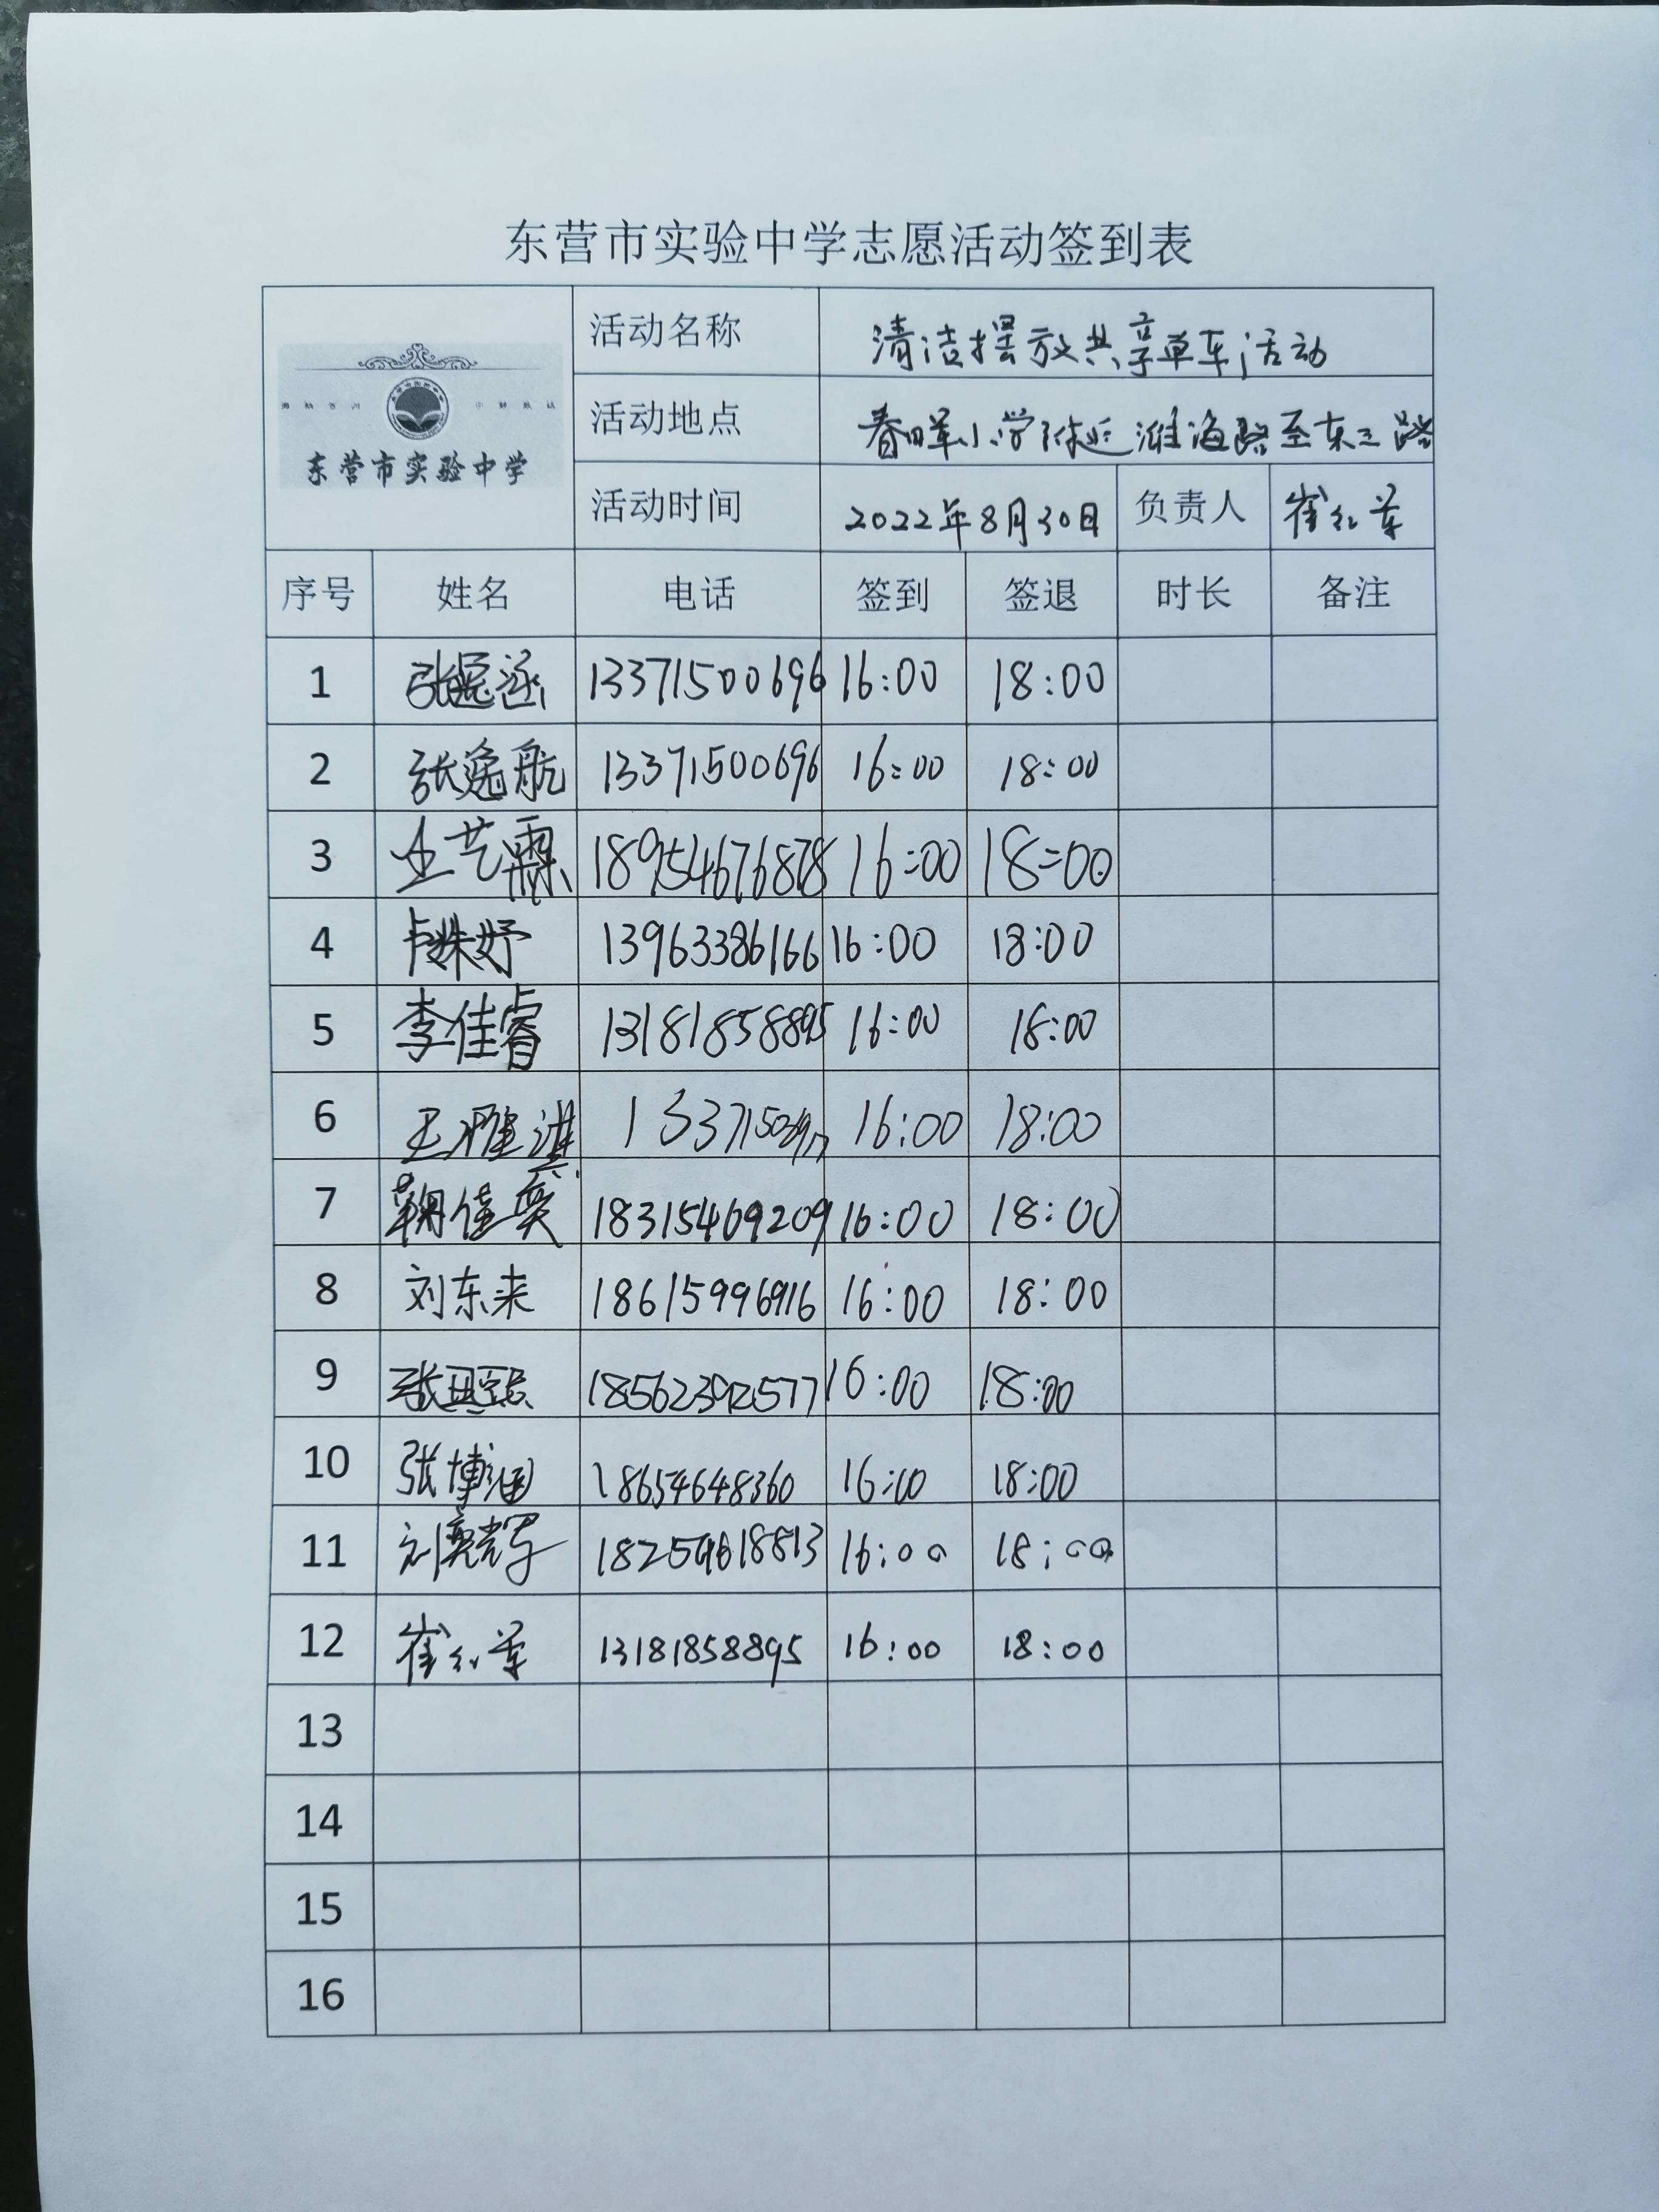 东营市实验中学志愿活动签到表
东营市实验中学
活动名称 清洁摆放共享单车活动
活动地点 春晖小学附近潍海路至东三路
活动时间 2022年8月30日 负责人 崔红军
序号 姓名 电话 签到 签退 时长 备注
1 张恩涵 13371500696 16:00 18:00
2 张逸航 13371500696 16:00 18:00
3 王艺霖 18954676878 16:00 18:00
4 卢姝妤 13963386166 16:00 18:00
5 李佳睿 13181858895 16:00 18:00
6 王雅淇 16:00 18:00
7 鞠佳奕 18315469209 16:00 18:00
8 刘东来 18615996916 16:00 18:00
9 16:00 18:00
10 张博涵 18654648360 16:00 18:00
11 刘奕辉 16:00 18:00
12 崔红军 13181858895 16:00 18:00
13
14
15
16